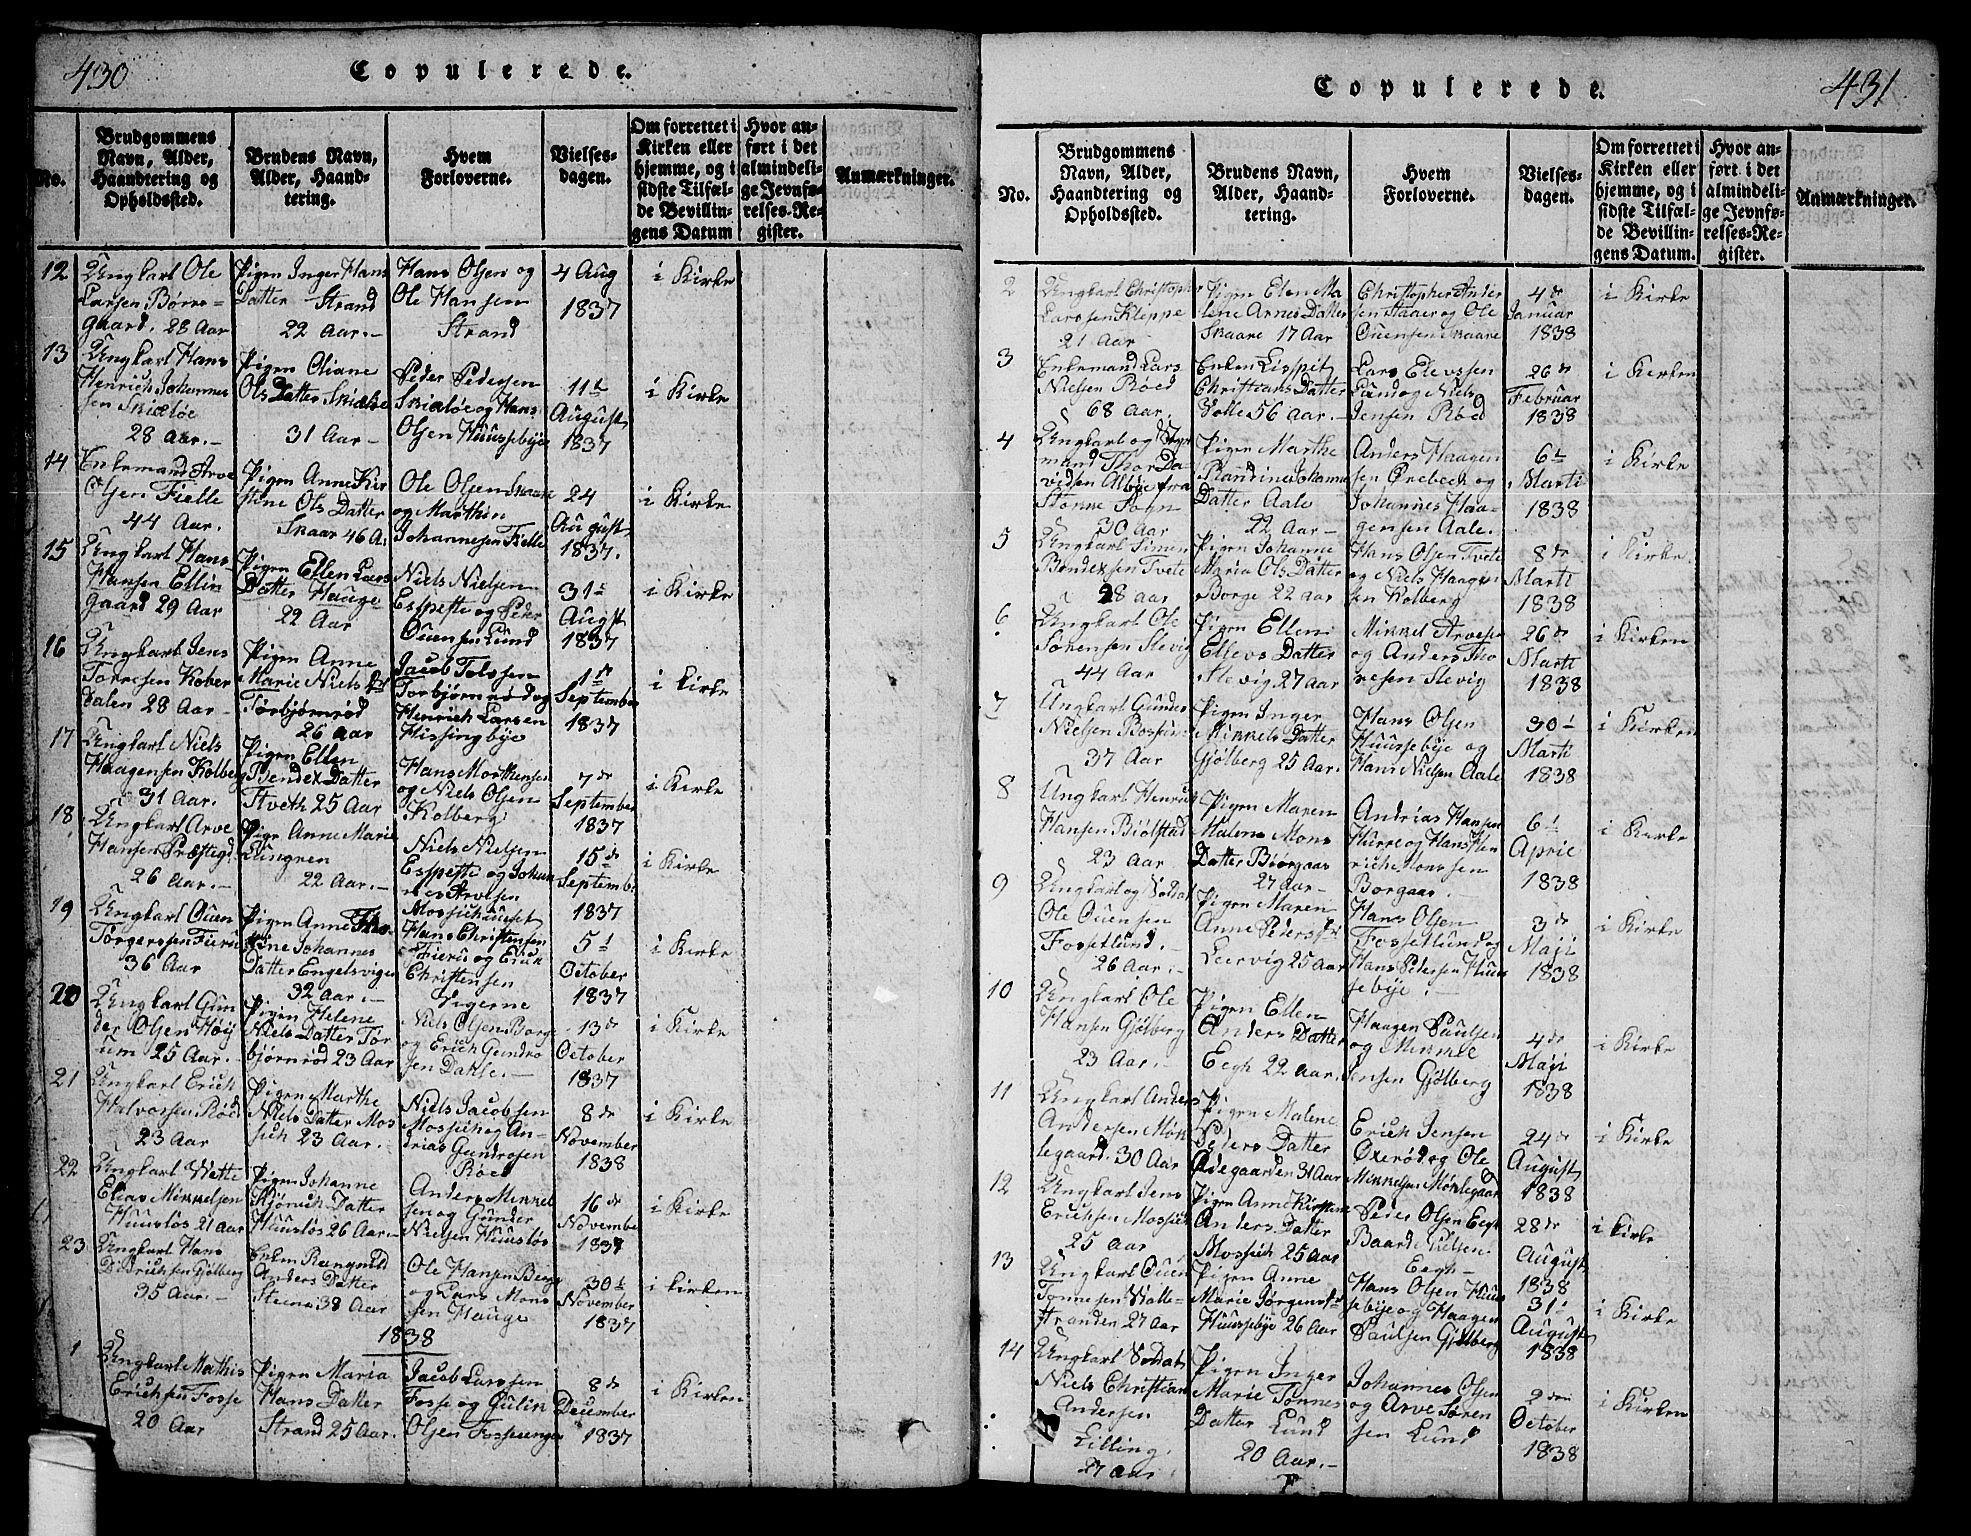 430
Copulerede.
No.
Brudgommens Navn, Alder, Haandtering og Opholdssted.
Brudens Navn, Alder, Haandtering.
Hvem Forloverne.
Vielsesdagen.
Om forrettet i Kirken eller hjemme, og i sidste Tilfælde Bevillingens Datum
Hvor anført i det almindelige Jevnførelses-Register.
Anmærkninger.
12
Ungkarl Ole
Larsen Børre-
gaard. 28 Aar
Pigen Inger Hans
Datter Strand
22 Aar.-
Hans Olsen og
Ole Hansen
Strand
4 Aug
1837
i Kirke
13
Ungkarl Hans
Henrich Johannes
sen Skieløe
28 Aar.-
Pigen Oliane
Ols Datter Skieløe
31 Aar-
Peder Pedersen
Skieløe og Hans
Olsen Huusebye
11te
August
1837
i Kirke
14
Enkemand Arve
Olsen Fielle
44 Aar.
Pigen Anne Kir
stine Ols Datter
Skaar 46 A.
Ole Olsen Skaare
og Marthin
Johannesen Fielle
24
August
1837.
i Kirke
15
Ungkarl Hans
Hansen Ellin
gaard 29 Aar
Pigen Ellen Lars
Datter Hauge
22 Aar
Niels Nielsen
Esspette og Peder
Ouensen Lund
31te
August
1837
i Kirke
16
Ungkarl Jens
Torresen Kober
dalen 28 Aar-
Pigen Anne
Marie Niels Dr
Torbjørnrød
26 Aar
Jacob Tolssen
Torbjørnrød og
Henrich Larsen
Hissingbye
1ste
September
1837
i kirke
17
Ungkarl Niels
Haagensen Kolberg
31 Aar.
Pigen Ellen
Bendex Datter
Tveth 25 Aar
Hans Morthensen
og Niels Olsen
Kolberg
7de
September
1837
i Kirke
18
Ungkarl Arve
Hansen Præstegd
26 Aar.-
Pige Anne Marie
Lungren
22 Aar.-
Niels Nielsen
Esspette og Johan
nes Arvesen
Mossichuuset
15de
Septemb:
1837
i Kirke
19
Ungkarl Ouen
Torgerssen Fieru
36 Aar
Pigen Anne Tho
rine Johannes
Datter Engelsvigen
32 Aar.-
Hans Christensen
Fieru og Erick
Christensen
Vigerne
5te
October
1837
i Kirke
20
Ungkarl Gun
der Olsen Høy
um 25 Aar.
Pigen Helene
Niels Datter Tor
bjørnrød 23 Aar
Niels Olsen Borge
og Erich Gundro
sen Dahle.-
13de
October
1837
i Kirke
21
Ungkarl Erich
Halvorsen Røed
23 Aar
Pigen Marthe
Niels Datter Mos
sich 23 Aar.
Niels Jacobsen
Mossich og An-
drias Gundrosen
Røed
8de
November
1838
i Kirke
22
Ungkarl Wette
Elias Mikkelsen
Huusløs 21 aar
Pigen Johanne
Hjørrich Datter
Huusløs 26 Aar.-
Anders Mikkel
sen og Gunder
Nielsen Huusløs
16de
November
1837
i Kirke
23
Ungkarl Hans
Didrichsen Gjølberg
35 Aar.-
Enken Rangnild
Anders Datter
Stene 38 Aar
Ole Hansen Berg
og Lars Mons
sen Hauge
30te
November
1837
i kirken
1838
1
Ungkarl Mathis
Erichsen Fosse
20 Aar
Pigen Maria
Hans Datter
Strand 25 Aar.
Jacob Larssen
Fosse og Gulik
Olsen Fosseenger
8de
December
1837
i Kirken
431
Copulerede.
No.
Brudgommens Navn, Alder, Haandtering og Opholdssted.
Brudens Navn, Alder, Haandtering.
Hvem Forloverne.
Vielsesdagen.
Om forrettet i Kirken eller hjemme, og i sidste Tilfælde Bevillingens Datum.
Hvor anført i det almindelige Jevnførelses-Register.
Anmærkninger.
2
Ungkarl Christopher
Larssen Kleppe
21 Aar
Pigen Elen Ma
lene Arnes Datter
Skaare 17 Aar
Christopher Ander
sen Staare og Ole
Ouensen Skaare
4de
Januar
1838
i Kirke
3
Enkemand Lars
Nielsen Røed
68 Aar.
Enken Lispit
Christians Datter
56 Aar.-
Lars Elevssen
Lund og Niels
Jensen Røed
26de
Februar
1838
i Kirken
4
Ungkarl og Styr
mand Thor Da
vidsen Albye fra
Stønne Sogn
30 Aar
Pigen Marthe
Blandine Johanne
Datter Aale
22 Aar-
Anders Haagen
sen Ørebeck og
Johannes Haa
gensen Aale.
6te
Marti
1838
i Kirke
5
Ungkarl Simen
Bendexsen Tvete
28 aar
Pigen Johanne
Maria Ols Datter
Borge 22 aar
Hans Olsen Tvete
og Niels Haagen
sen Kolberg
8de
Marti
1838
i Kirke
6
Ungkarl Ole
Sørensen Slevig
44 Aar
Pigen Ellen
Ellevs Datter
Slevig 27 aar
Mikkel Arvesen
og Anders Tho
resen Slevig
26de
Marti
1838
i Kirken
7
Ungkarl Gunder
Nielsen Bossum
37 Aar
Pigen Inger
Mikkels Datter
Gjølberg 25 Aar.
Hans Olsen
Huussebye og
Hans Nielsen Aale
30te
Marti
1838
i Kirken
8
Ungkarl Henrich
Hansen Biølstad
23 Aar
Pigen Maren
Malene Mons
Datter Biørgaas
27 aar-
Andrias Hansen
Hurre og Hans Hen
rich Monssen
Borgaas.
6te
April
1838
i Kirke
9
Ungkarl og Soldat
Ole Ouensen
Fossetlund.-
26 Aar.-
Pigen Maren
Anne Peders Dr
Leervig 25 Aar
Hans Olsen
Fossetlund og
Hans Pedersen Huus
sebye.-
3de
Maji
1838
i Kirke
10
Ungkarl Ole
Hansen Gjølberg
23 Aar
Pigen Ellen
Anders Datter
Eegh 22 aar.
Haagen Paulsen
og Mikkel
Jensen Gjølberg
4de
Maji
1838
i Kirke
11
Ungkarl Anders
Andersen Møk
legaard 30 Aar
Pigen Malene
Peders Datter
Ødegaarden 31 Aar
Erich Jensen
Oxerød og Ole
Mikkelsen Møklegaar
24de
August
1838
i Kirke
12
Ungkarl Jens
Erichsen Mossich
25 Aar
Pigen Anne Kirstine
Anders Datter
Mossich 25 aar
Peder Olsen Eegh
Baard Nielsen
Eegh-
28de
August
1838
i kirke
13
Ungkarl Ouen
Tønnesen Walle-
stranden 27 aar
Pigen Anne
Marie Jørgens Dr
Huussebye 26 Aar
Hans Olsen Huus
sebye og Haagen
Paulsen Gjølberg
31te
August
1838
i Kirke
14
Ungkarl Soldat
Niels Christian
Andersen
Lilling.
27 aar
Pigen Inger
Marie Tønnes
Datter Lund
20 Aar.-
Johannes Olsen
og Arve Søren
sen Lund
2den
October
1838
i Kirken